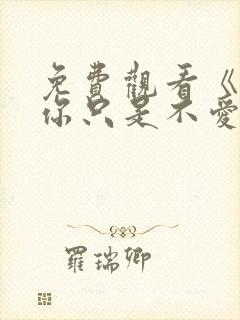 免費觀看《
你只是不愛
羅瑞卿